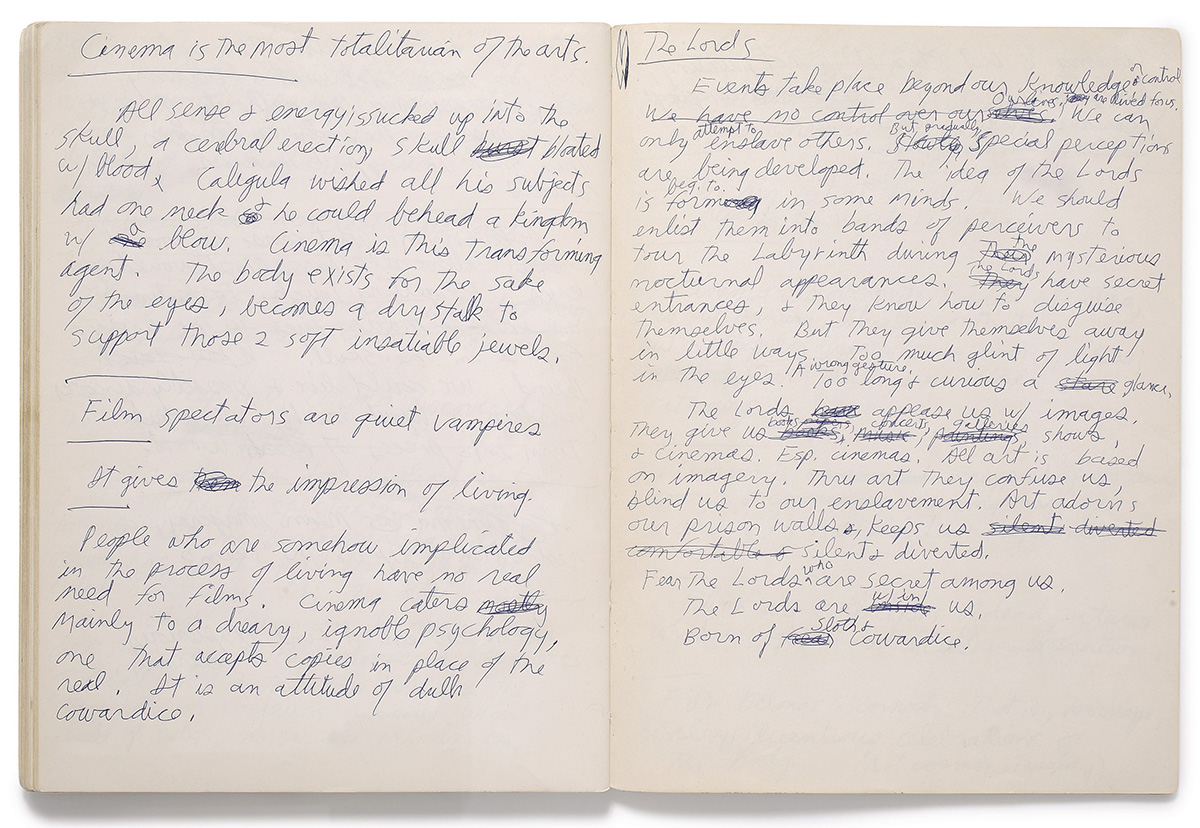 Cinema is the most totalitarian of the arts.
All sense & energy is sucked up into the
skull, a cerebral erection, skull bloated
w/ blood. Caligula wished all his subjects
had one neck & he could behead a kingdom
w/ a blow. Cinema is this transforming
agent. The body exists for the sake
of the eyes, becomes a dry stalk to
support those 2 soft insatiable jewels.
Film spectators are quiet vampires
It gives the impression of living.
People who are somehow implicated
in the process of living have no real
need for films. Cinema caters mostly
mainly to a dreary, ignoble psychology,
one that accepts copies in place of the
real. It is an attitude of dull
cowardice.
The Lords
Events take place beyond our knowledge or control
Our lives, are lived for us.
We have no control over our We can
attempt to But gradually
only enslave others. Special perceptions
are being developed. The idea of the Lords
beg. to
is form in some minds. We should
enlist them into bands of perceivers to
the
tour the Labyrinth during Their mysterious
The Lords
nocturnal appearances. They have secret
entrances, & they know how to disguise
themselves. But they give themselves away
in little ways. Too much glint of light
A wrong gesture.
in the eyes. Too long & curious a stare glance.
The Lords appease us w/ images.
books, concerts, galleries
They give us books, music, paintings, shows,
& cinemas. Esp. cinemas. All art is based
on imagery. Thru art they confuse us,
blind us to our enslavement. Art adorns
our prison walls, keeps us silent diverted
comfortable & silent & diverted.
who
Fear the Lords are secret among us.
w/in
The Lords are inside us.
sloth &
Born of cowardice.